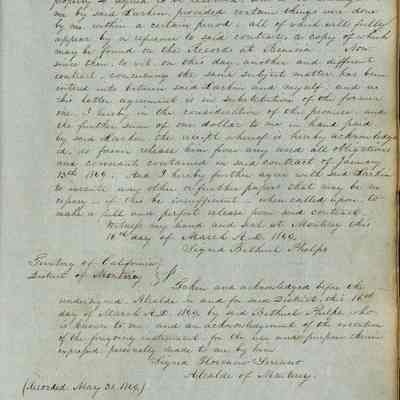 me by said Larkin, provided certain things were done
by me within a certain period, all of which will fully
appear by a reference to said contract, a copy of which
may be found on the Records at Benicia. Now
since then, to wit, on this day, another and different
contract, concerning the same subject matter has been
entered into between said Larkin and myself, and as
this latter agreement is in substitution of the former
one, I hereby in the consideration of the premises, and
the further sum of one dollar to me in hand paid
by said Larkin, the receipt whereof is hereby acknowledg
ed, do forever release him from any and all obligations
and covenants contained in said contract of January
13th 1849. And I hereby further agree with said Larkin
to execute any other or further papers that may be ne
cessary, if this be insufficient, when called upon, to
make a full and perfect release from said contract.
Witness my hand and seal at Monterey this
16th day of March A.D. 1849.
Signed Bethuel Phelps
Territory of California
District of Monterey
Taken and acknowledged before the
undersigned Alcalde in and for said District, this 16th
day of March A.D. 1849 by said Bethuel Phelps who
is known to me and an acknowledgement of the execution
of the foregoing instrument for the uses and purposes therein
expressed personally made to me by him
Signed Florencio Serrano
Alcalde of Monterey.
(Recorded May 30, 1849)